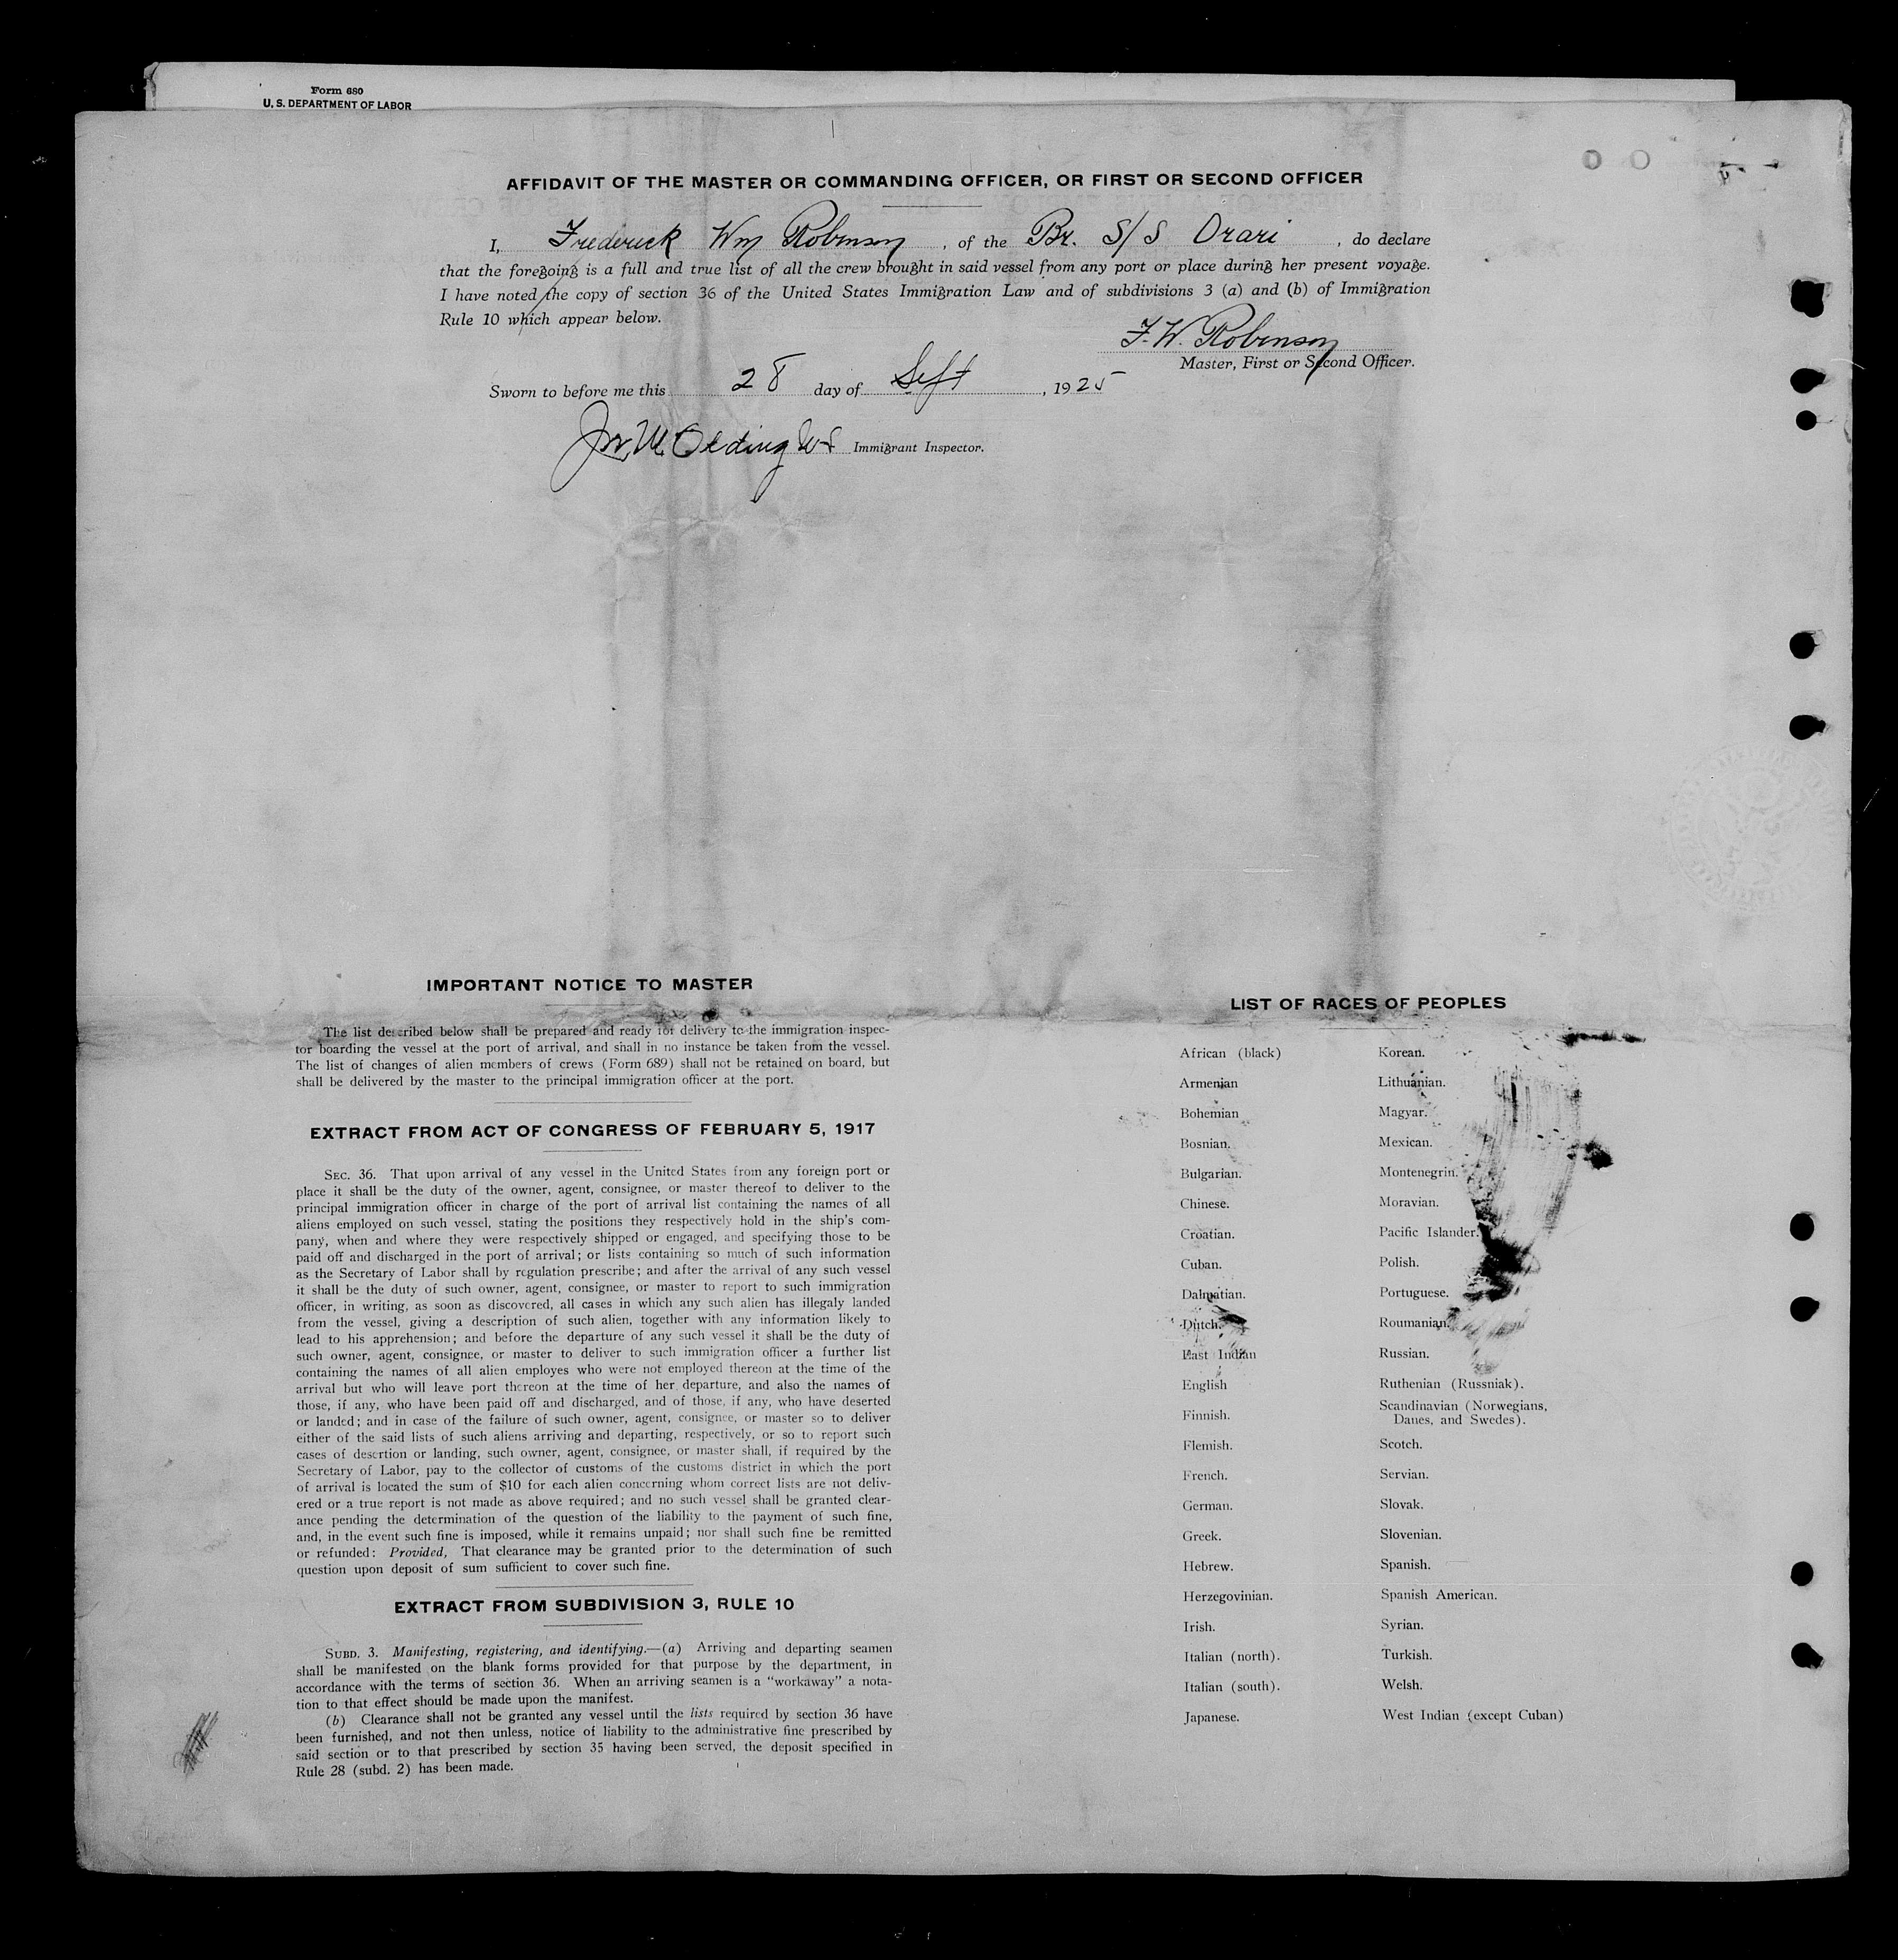 Form 680
U. S. DEPARTMENT OF LABOR
AFFIDAVIT OF THE MASTER OR COMMANDING OFFICER, OR FIRST OR SECOND OFFICER
I, Frederick Wm Robinson, of the Br. S/S Orari, do declare
that the foregoing is a full and true list of all the crew brought in said vessel from any port or place during her present voyage.
I have noted the copy of section 36 of the United States Immigration Law and of subdivisions 3 (a) and (b) of Immigration
Rule 10 which appear below.
F. W. Robinson
Master, First or Second Officer.
Sworn to before me this 28 day of Sept, 1925
Immigrant Inspector.
IMPORTANT NOTICE TO MASTER
The list described below shall be prepared and ready for delivery to the immigration inspec-
tor boarding the vessel at the port of arrival, and shall in no instance be taken from the vessel.
The list of changes of alien members of crews (Form 689) shall not be retained on board, but
shall be delivered by the master to the principal immigration officer at the port.
EXTRACT FROM ACT OF CONGRESS OF FEBRUARY 5, 1917
SEC. 36. That upon arrival of any vessel in the United States from any foreign port or
place it shall be the duty of the owner, agent, consignee, or master thereof to deliver to the
principal immigration officer in charge of the port of arrival list containing the names of all
aliens employed on such vessel, stating the positions they respectively hold in the ship's com-
pany, when and where they were respectively shipped or engaged, and specifying those to be
paid off and discharged in the port of arrival; or lists containing so much of such information
as the Secretary of Labor shall by regulation prescribe; and after the arrival of any such vessel
it shall be the duty of such owner, agent, consignee, or master to report to such immigration
officer, in writing, as soon as discovered, all cases in which any such alien has illegaly landed
from the vessel, giving a description of such alien, together with any information likely to
lead to his apprehension; and before the departure of any such vessel it shall be the duty of
such owner, agent, consignee, or master to deliver to such immigration officer a further list
containing the names of all alien employes who were not employed thereon at the time of the
arrival but who will leave port thereon at the time of her departure, and also the names of
those, if any, who have been paid off and discharged, and of those, if any, who have deserted
or landed; and in case of the failure of such owner, agent, consignee, or master so to deliver
either of the said lists of such aliens arriving and departing, respectively, or so to report such
cases of desertion or landing, such owner, agent, consignee, or master shall, if required by the
Secretary of Labor, pay to the collector of customs of the customs district in which the port
of arrival is located the sum of $10 for each alien concerning whom correct lists are not deliv-
ered or a true report is not made as above required; and no such vessel shall be granted clear-
ance pending the determination of the question of the liability to the payment of such fine,
and, in the event such fine is imposed, while it remains unpaid; nor shall such fine be remitted
or refunded: Provided, That clearance may be granted prior to the determination of such
question upon deposit of sum sufficient to cover such fine.
EXTRACT FROM SUBDIVISION 3, RULE 10
SUBD. 3. Manifesting, registering, and identifying.—(a) Arriving and departing seamen
shall be manifested on the blank forms provided for that purpose by the department, in
accordance with the terms of section 36. When an arriving seamen is a "workaway" a nota-
tion to that effect should be made upon the manifest.
(b) Clearance shall not be granted any vessel until the lists required by section 36 have
been furnished, and not then unless, notice of liability to the administrative fine prescribed by
said section or to that prescribed by section 35 having been served, the deposit specified in
Rule 28 (subd. 2) has been made.
LIST OF RACES OF PEOPLES
African (black)
Armenian
Bohemian
Bosnian.
Bulgarian.
Chinese.
Croatian.
Cuban.
Dalmatian.
Dutch.
East Indian
English
Finnish.
Flemish.
French.
German.
Greek.
Hebrew.
Herzegovinian.
Irish.
Italian (north).
Italian (south).
Japanese.
Korean.
Lithuanian.
Magyar.
Mexican.
Montenegrin.
Moravian.
Pacific Islander.
Polish.
Portuguese.
Roumanian.
Russian.
Ruthenian (Russniak).
Scandinavian (Norwegians,
Danes, and Swedes).
Scotch.
Servian.
Slovak.
Slovenian.
Spanish.
Spanish American.
Syrian.
Turkish.
Welsh.
West Indian (except Cuban)